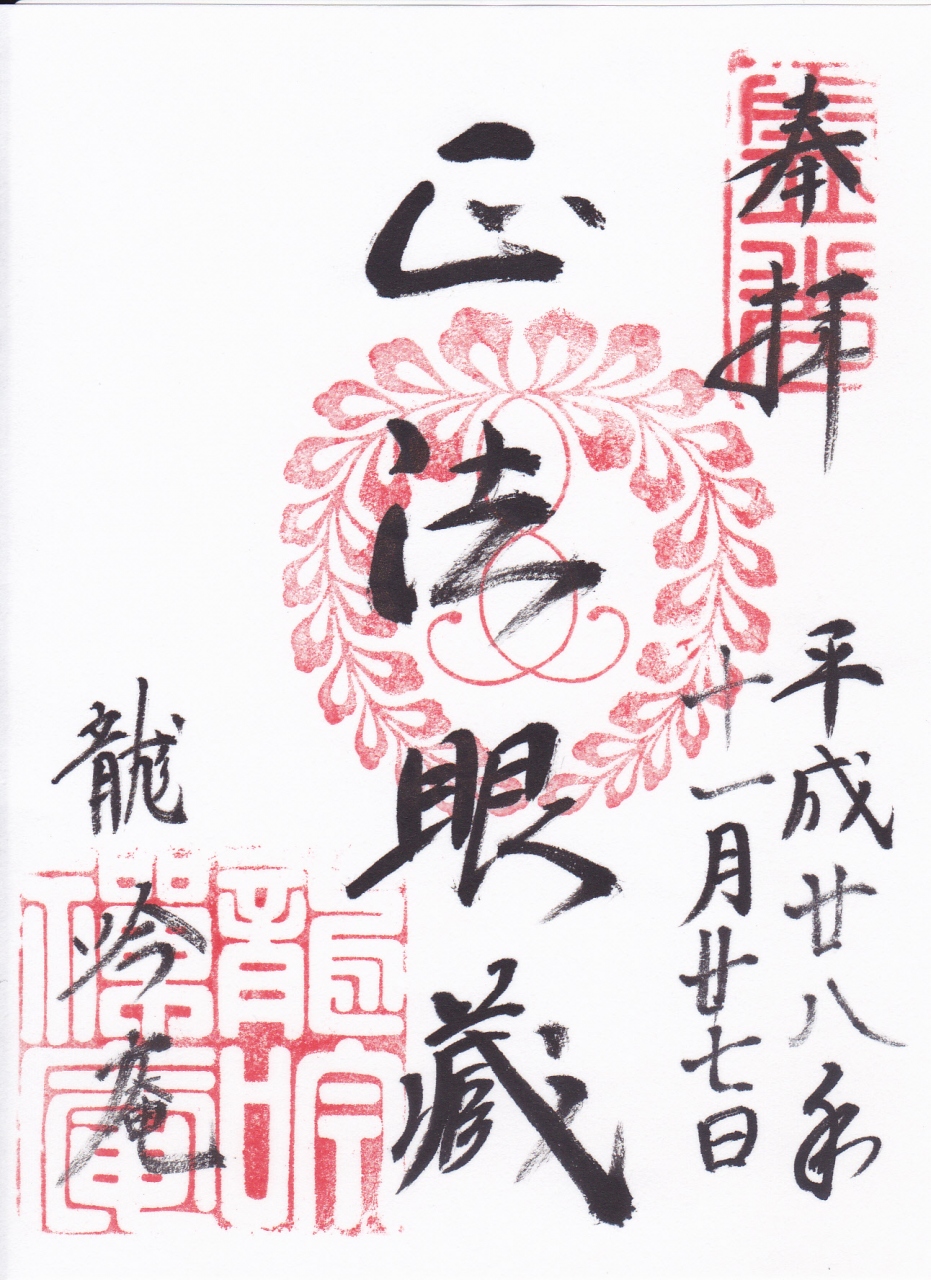 奉拝
平成廿八年
十一月廿七日
正法眼蔵
龍吟庵
龍吟禅庵